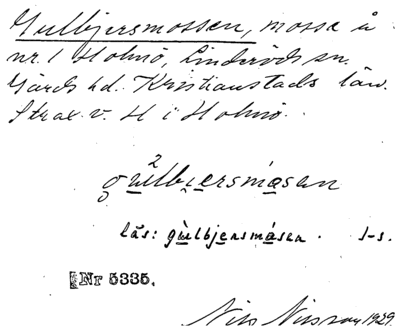 Gulbjersmossen, mosse å
nr. 1 Holmö, Linderöds sn.
Gärds hd. Kristianstads län.
Strax v. H i Holmö.
2
gu̲lbi̲ersmå̲sen
läs: gùlbjersmásen. s-s.
Nr 5335.
Nils Nilsson 1929.